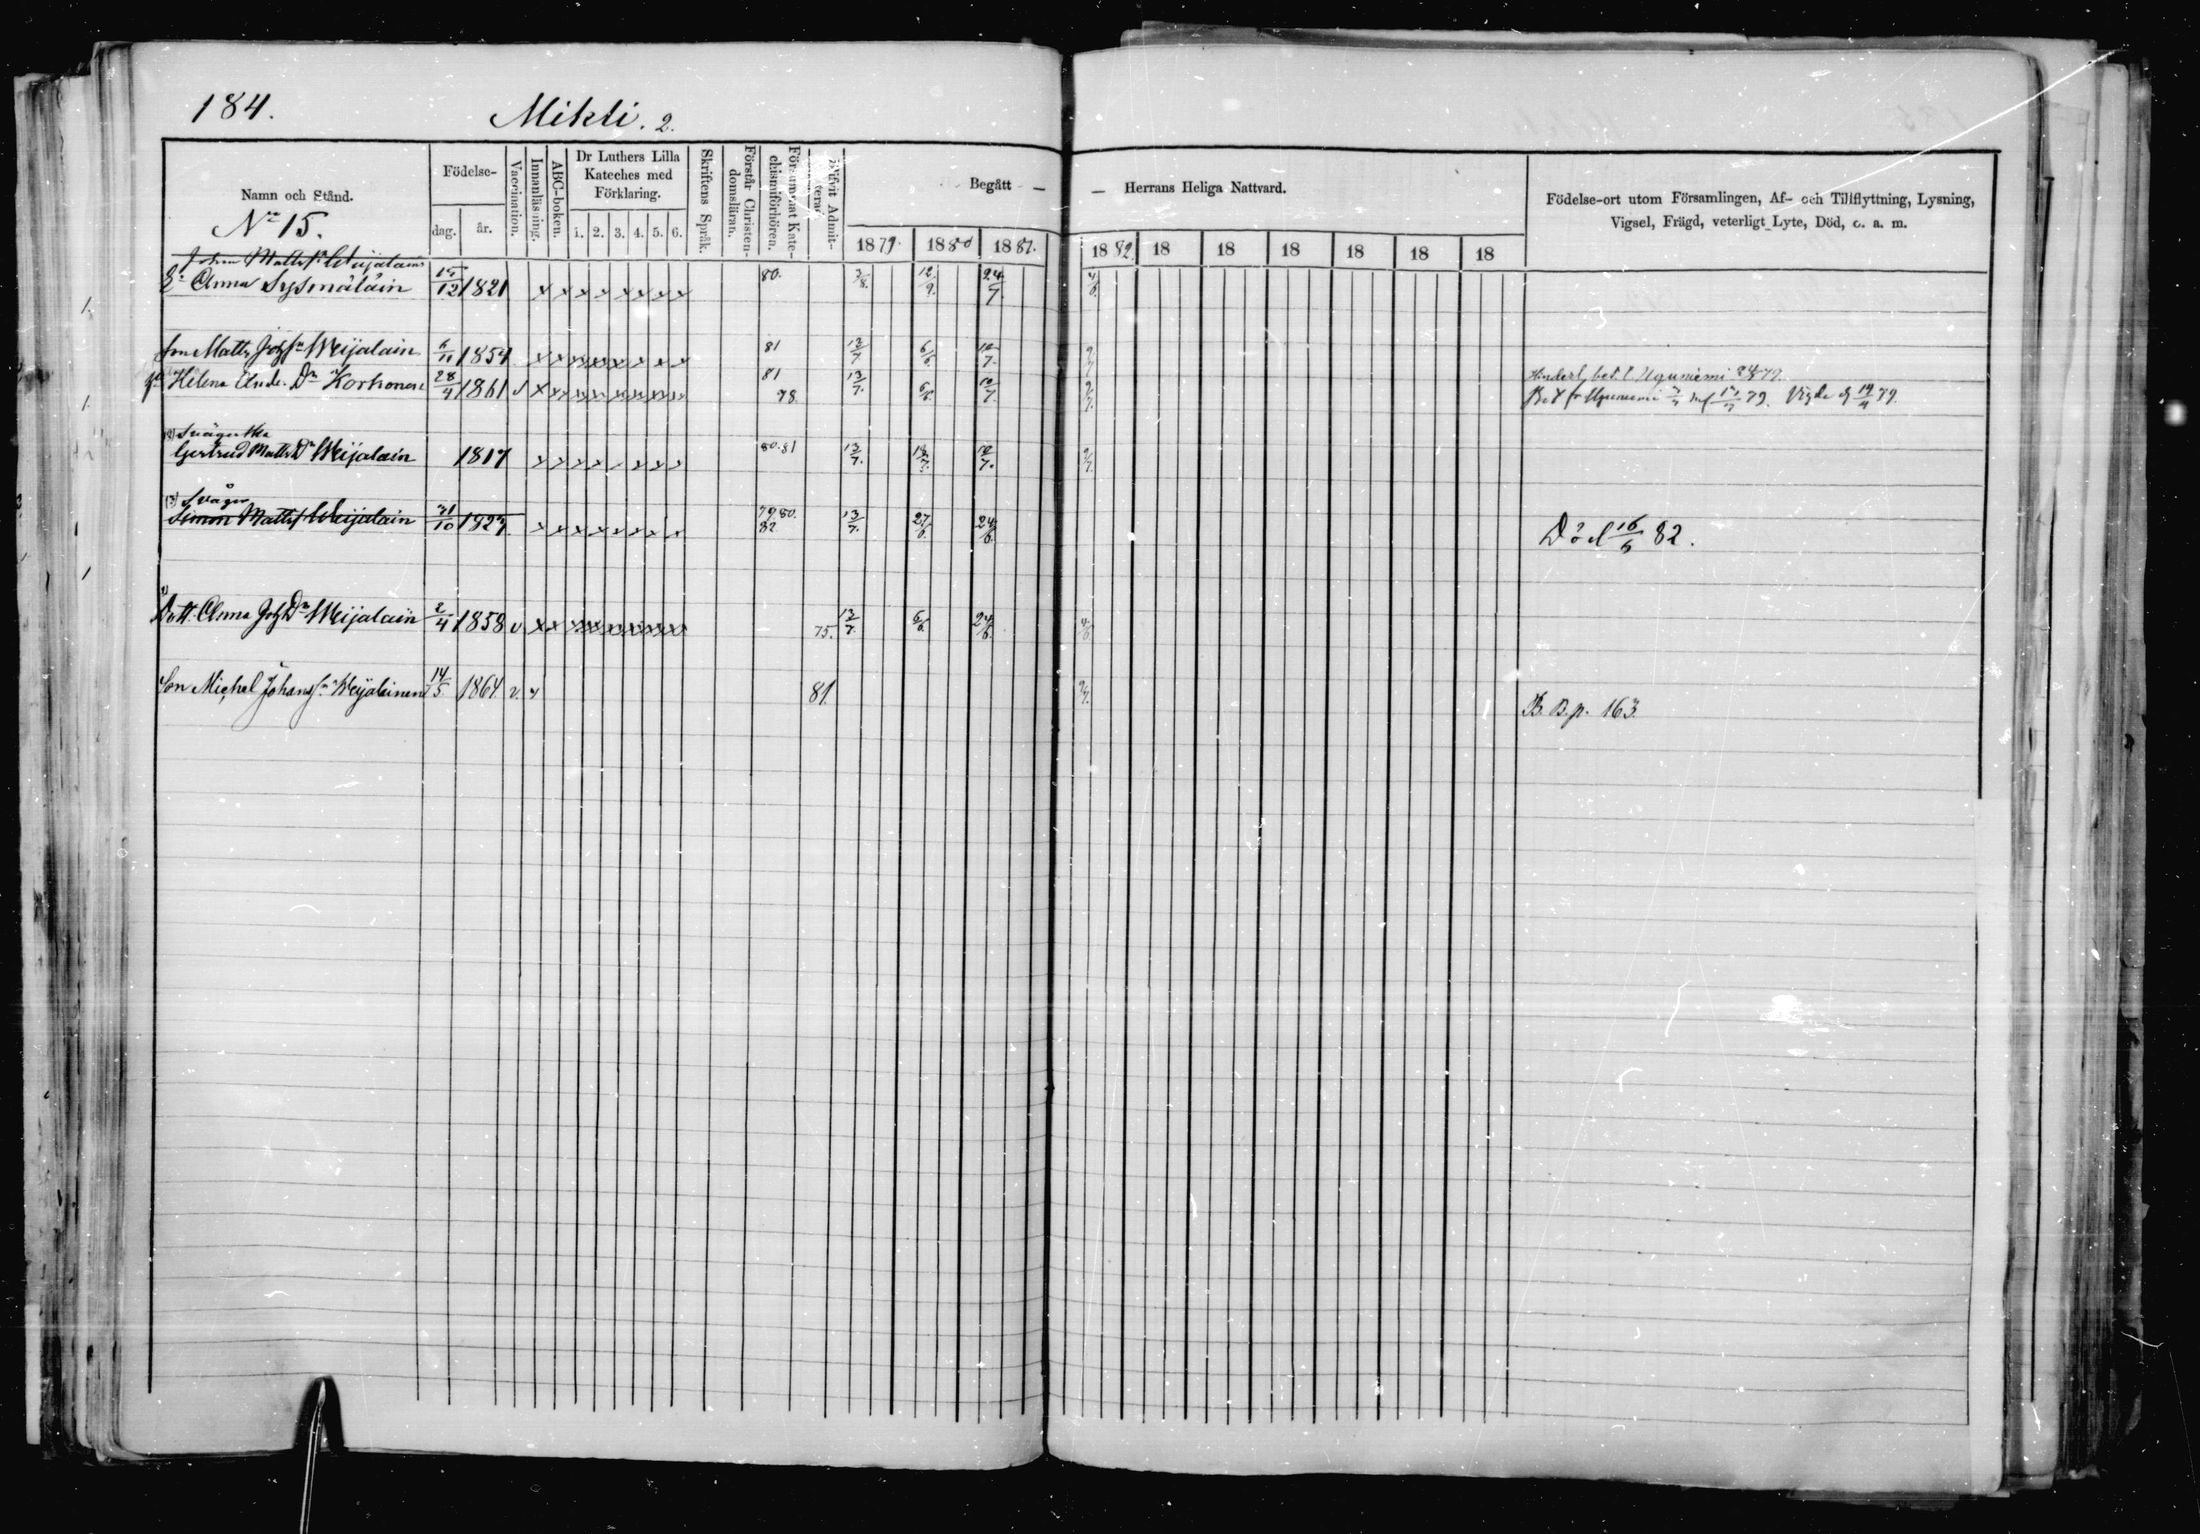 184.
Mikli. 2.
Namn och Stånd.
Födelse-
dag.
år.
Vaccination.
Innanläsning.
ABC-boken.
Dr Luthers Lilla
Kateches med
Förklaring.
1. 2. 3. 4. 5. 6.
Skriftens Språk.
Förstår Christen-
domsläran.
Försummat Kate-
chismiförhören.
Blifvit Admit-
terad
Begått — — Herrans Heliga Nattvard.
1879. 1880 1881. 1882. 18 18 18 18 18 18
Födelse-ort utom Församlingen, Af- och Tillflyttning, Lysning,
Vigsel, Frägd, veterligt Lyte, Död, o. a. m.
No 15.
Johan Matts Weijalain
Anna Sysmäläin 12 1821 x x x x x x x x 80. 3/8. 12/9. 24/7. 4/6.
Son Matts Johsn Weijalain 6/11 1854 x x x x x x x x 81 13/7 6/6 10/7. 9/7
Helena And. Dr Korhonen 28/4 1861 v x x x x x x x x 81 78 13/7. 6/6. 10/7. 9/7. Uguniemi 79.
Uguniemi 79. Vigde 79.
Gertrud Matts Dr Weijalain 1817 x x x x x x x 80.81 13/7. 10/7. 9/7.
Svåger
Simon Matts Weijalain 31/10 1827. x x x x x x x x 79.80. 82 13/7. 27/6. 24/6. Död 16/5 82.
Dott. Anna Joh Dr Weijalain 2/4 1858 v x x x x x x x x 75. 13/7. 6/6. 24/6. 4/6.
Son Michel Johanssn Weijalainen 14/5 1864 v. 81. 9/7. B. B. p. 163.